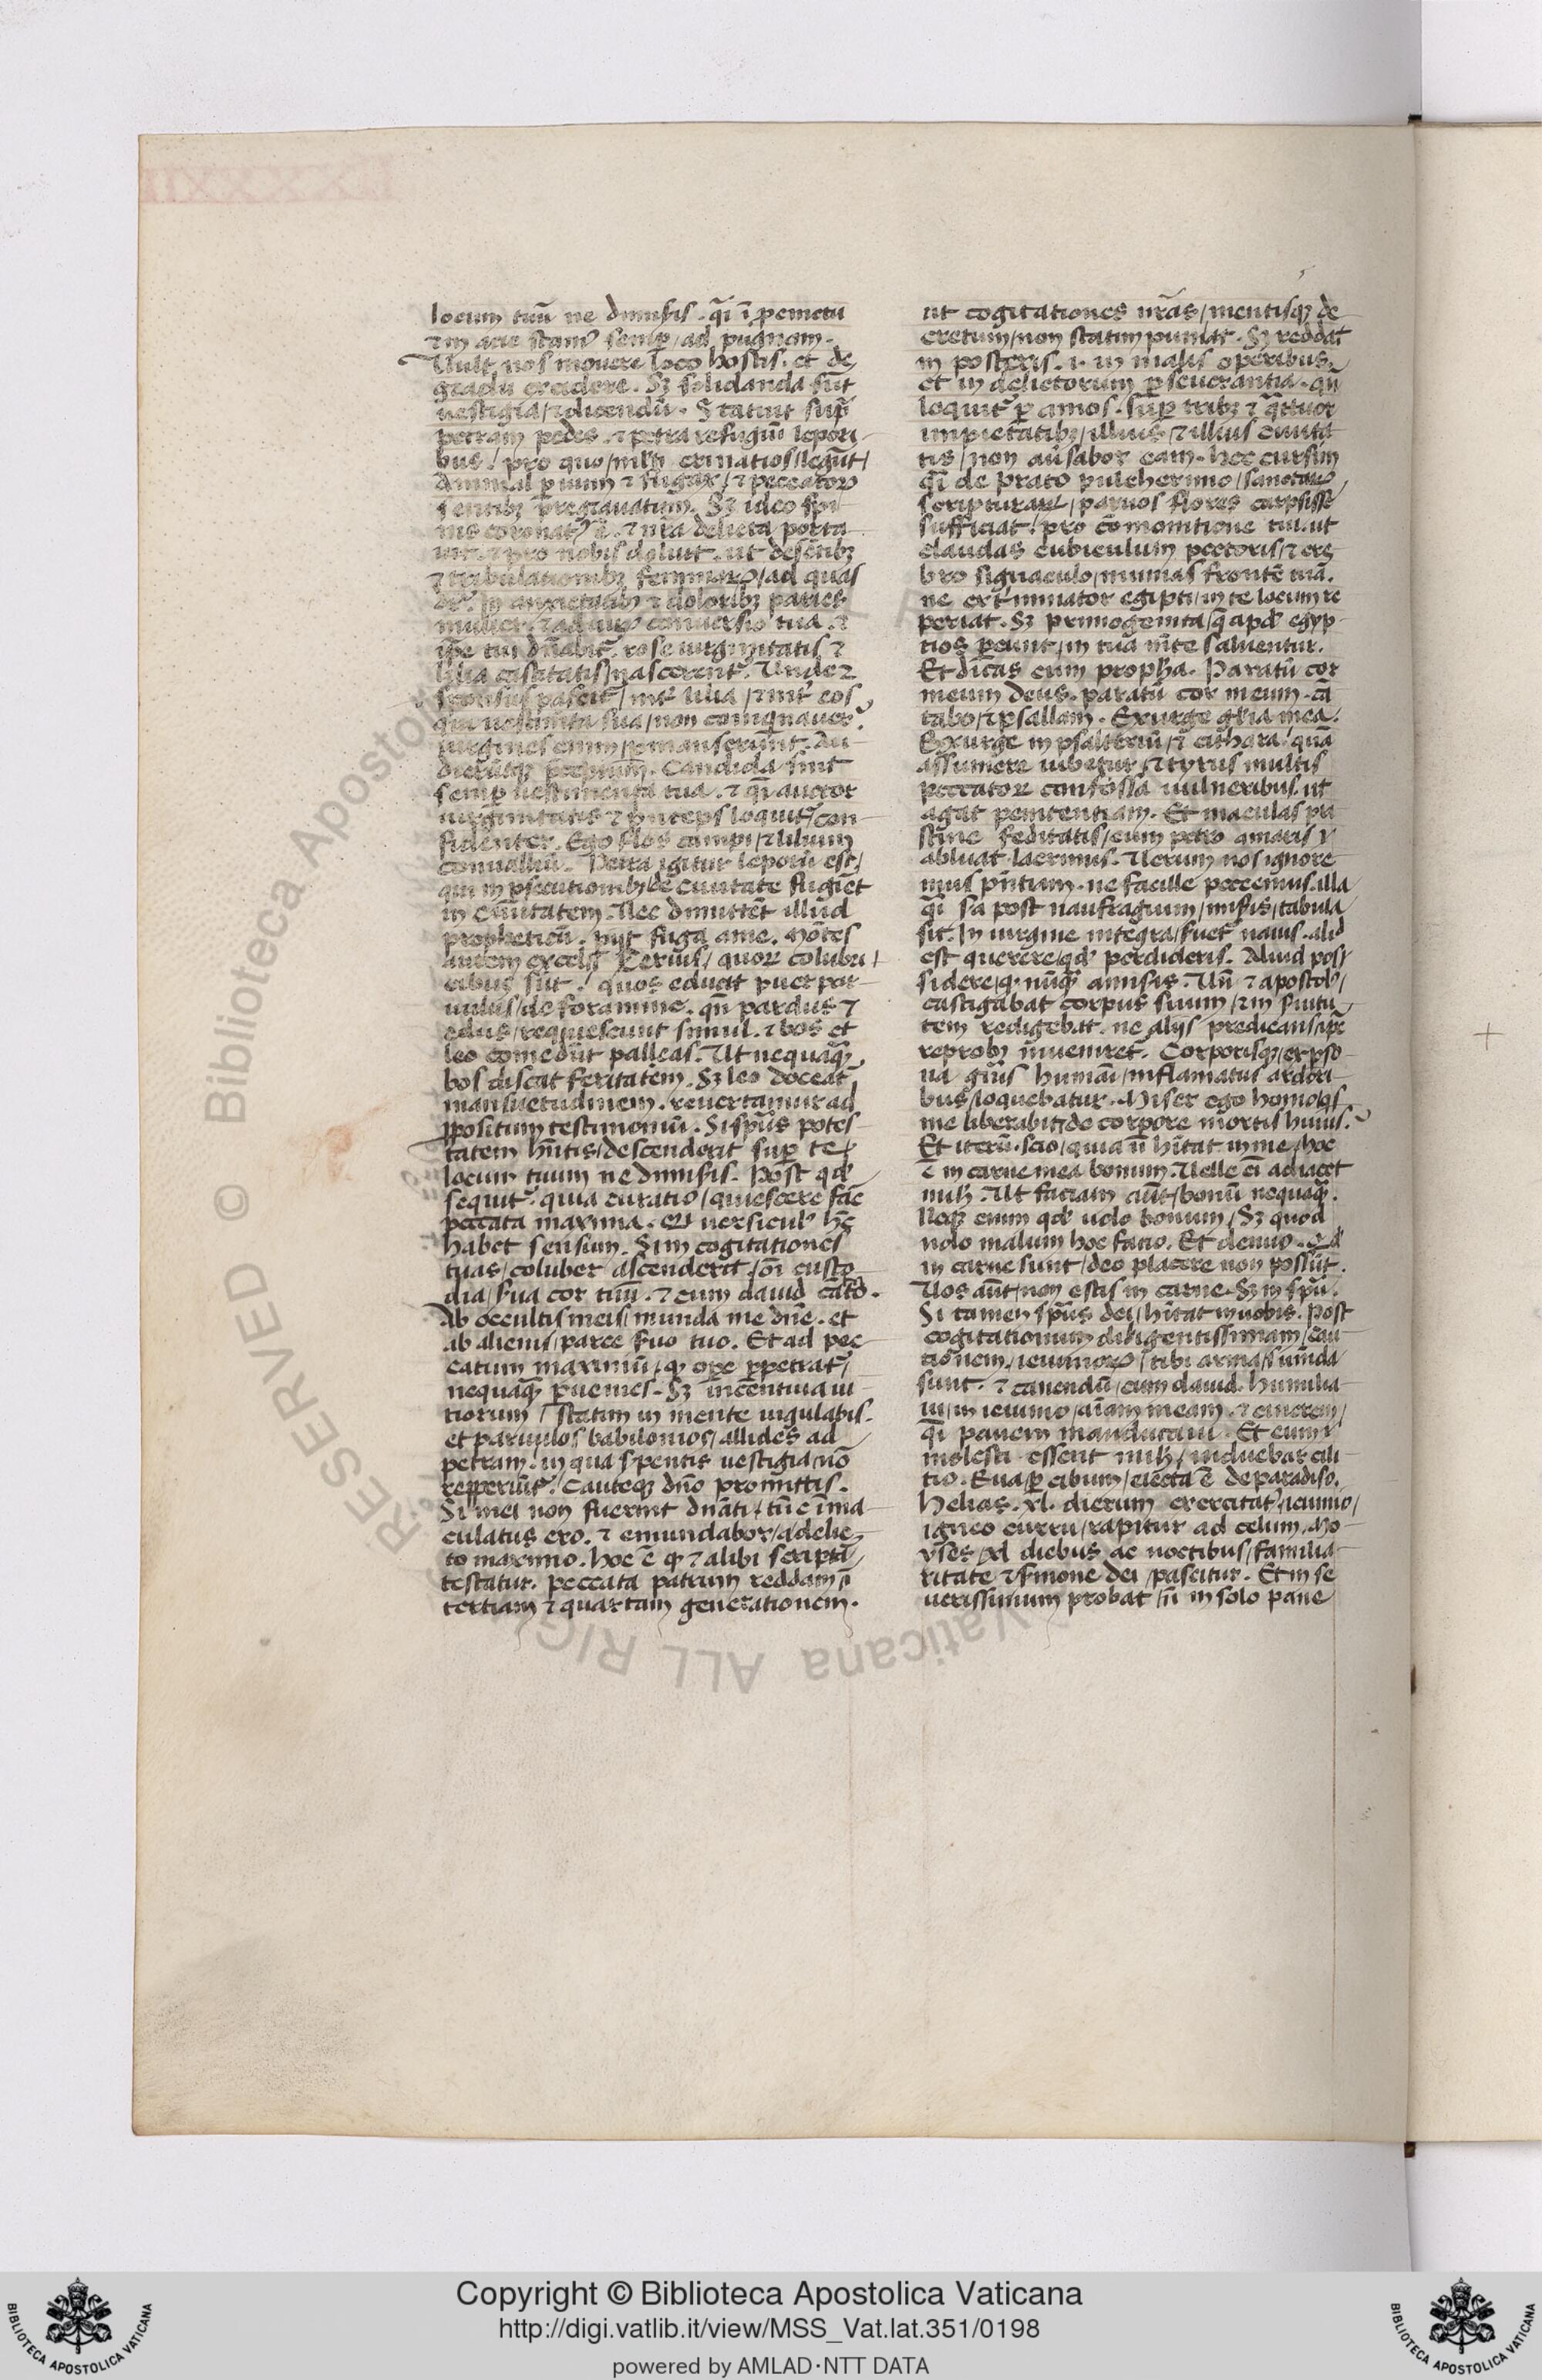 locum tuū ne dimisis. q̄i ī p̱cinctu
⁊ in acie stamꝰ semꝑ / ad pugnam.
Uult nos mouere loco hostis. et de
gradu excedere. Sꝫ solidanda sūt
uestigia / ⁊ dicendū. Statuit suꝑ
petram pedes. ⁊ petra refugiū lepori
bus / pro quo / ml̄ti erinatios / legūt /
Animal ꝑuum ⁊ fugax / ⁊ peccatoꝝ
sentibꝫ pregrauatum. Sꝫ ideo spi
nis coronatꝰ ē. ⁊ nr̄a delicta porta
uit. ⁊ pro nobis doluit. ut de sētibꝫ
⁊ tribulationibꝫ feminaꝝ / ad quas
dr̄. In anxietatibꝫ ⁊ doloribꝫ paries
mulier. ⁊ ad uiꝝ conuersio tua. ⁊
ip̄e tui dn̄abit̄. rose uirginitatis ⁊
lilia castitatis / nascerent̄. Unde ⁊
sponsus pascit̄ / int̄ lilia / ⁊ int̄ eos
qui uestimēta sua / non coinq̄nauer̄t
uirgines enim / ꝑmanserunt. Au
dierūtqꝫ p̄ceptum. Candida sint
semꝑ uestimenta tua. ⁊ q̄i auctor
uirginitatis ⁊ p̄nceps loquit̄ con
fidenter. Ego flos campi / ⁊ lilium
conualliū. Petra igitur leporū est /
qui in ꝑsecutionibꝫ / de ciuitate fugiēt
in ciuitatem. Nec dimittēt illud
propheticū. ꝑijt fuga a me. Mōtes
autem excelsi ceruis / quoꝝ colubri
cibus sūt / quos educit puer par
uulus / de foramine. qn̄ pardus ⁊
edus / requiescunt simul. ⁊ bos et
leo comedūt palleas. Ut nequaqꝫ
bos discat feritatem. Sꝫ leo doceat̄
mansuetudinem. reuertamur ad
ꝓpositum testimoniū. Si sp̄us potes
tatem hn̄tis / descenderit suꝑ te /
locum tuum ne dimisis. Post qd̓
sequit̄. quia curatio / quiescere fac̄
peccata maxima. Qui uersiculꝰ hūc
habet sensum. Si in cogitationes
tuas / coluber ascenderit / oī custo
dia / s̄ua cor tuū. ⁊ cum dauid cāto.
Ab occultis meis / munda me dn̄e. et
ab alienis / parce s̄uo tuo. Et ad pec
catum maximū / qꝫ oꝑe ꝑpetrat̄ /
nequaqꝫ ꝑuenies. Sꝫ incentiua ui
tiorum / statim in mente iugulabis.
et paruulos babilonios / allides ad
petram. in qua s̄pentis uestigia nō
repperiūt̄. Cauteqꝫ dn̄o promittis.
Si mei non fuerint dn̄ati / tūc īma
culatus ero. ⁊ emundabor / a delic
to maximo. Hoc ē qꝫ ⁊ alibi sc̄ripta
testatur. peccata patrum reddam ī
tertiam ⁊ quartam generationem.
ut cogitationes nr̄as / mentisqꝫ de
cretum / non statim puniat. Sꝫ reddat
in posteris. i. in malis operibus.
et in delictorum ꝑseuerantia. qn̄
loquit̄ ꝑ amos. Suꝑ tribꝫ ⁊ q̄ttuor
impietatibꝫ / illius / ⁊ illius ciuita
tis / non au̓sabor eam. Hec cursim
q̄i de prato pulcherimo / sanctaꝝ
scripturaꝝ / paruos flores carpsisse
sufficiat / pro cōmonitione tui. ut
claudas cubiculum pectoris / ⁊ cre
bro signaculo / munias frontē tuā.
ne ext̄minator egipti / in te locum re
periat. Sꝫ primogenita / q̄ apd̓ egyp
tios ꝑeunt / in tua mēte saluentur.
Et dicas cum proph̄a. Paratū cor
meum deus. paratū cor meum. cā
tabo / ⁊ psallam. Exurge gl̄ia mea.
Exurge in psalteriū / ⁊ cithara / quā
assumere iubetur / ⁊ tyrus multis
peccatoꝝ confossa uulneribus. ut
agat penitentiam. Et maculas pri
stine feditatis / cum petro amaris /
abluat lacrimis. Uerum nos ignore
mus pn̄tiam. ne facille peccemus. illa
q̄i s̄a post naufragium / misis / tabula
sit. In uirgine integra / s̄uet̄ nauis. aliđ
est querere / qd̓ perdideris. Aliud pos
sidere / qꝫ nūqꝫ amisis. Un̄ ⁊ apostolꝰ /
castigabat corpus suum / ⁊ in s̄uitu
tem redigebat. ne alijs predicans / ip̄e
reprobꝰ inueniret̄. Corporisqꝫ / ex ꝑso
na gn̄is humai / inflamatus ardori
bus / loquebatur. Miser ego homo / qs
me liberabit / de corpore mortis huius.
Et iterū. scio / quia n̄ hītat in me / hoc
ē in carne mea bonum. Uelle ei adiacet
mihi. Ut faciam aūt / bonū nequaqꝫ.
Neqꝫ enim qd̓ uolo bonum / Sꝫ quod
nolo malum hoc facio. Et denuo. Qui
in carne sunt / deo placere non possūt.
Uos aūt / non estis in carne. Sꝫ in sp̄u.
Si tamen sp̄us dei / hītat in uobis. Post
cogitationum diligentissimam / cau
tionem. ieiunioꝝ / tibi arma / sumēda
sunt. ⁊ canendū / cum dauid. humilia
ui / in ieiunio / aīam meam. ⁊ cinerem /
q̄i panem manducaui. Et cum
molesti essent mihi / induebar cili
tio. Eua / ꝑ cibum / eiecta ē de paradiso.
Helias. xl. dierum exercitatꝰ ieiunio /
igneo curru / rapitur ad celum. Mo
yses / xl diebus ac noctibus / familia
ritate ⁊ s̄mone dei / pascitur. Et in se
uerissimum probat / n̄ in solo pane
Copyright © Biblioteca Apostolica Vaticana
http://digi.vatlib.it/view/MSS_Vat.lat.351/0198
powered by AMLAD·NTT DATA